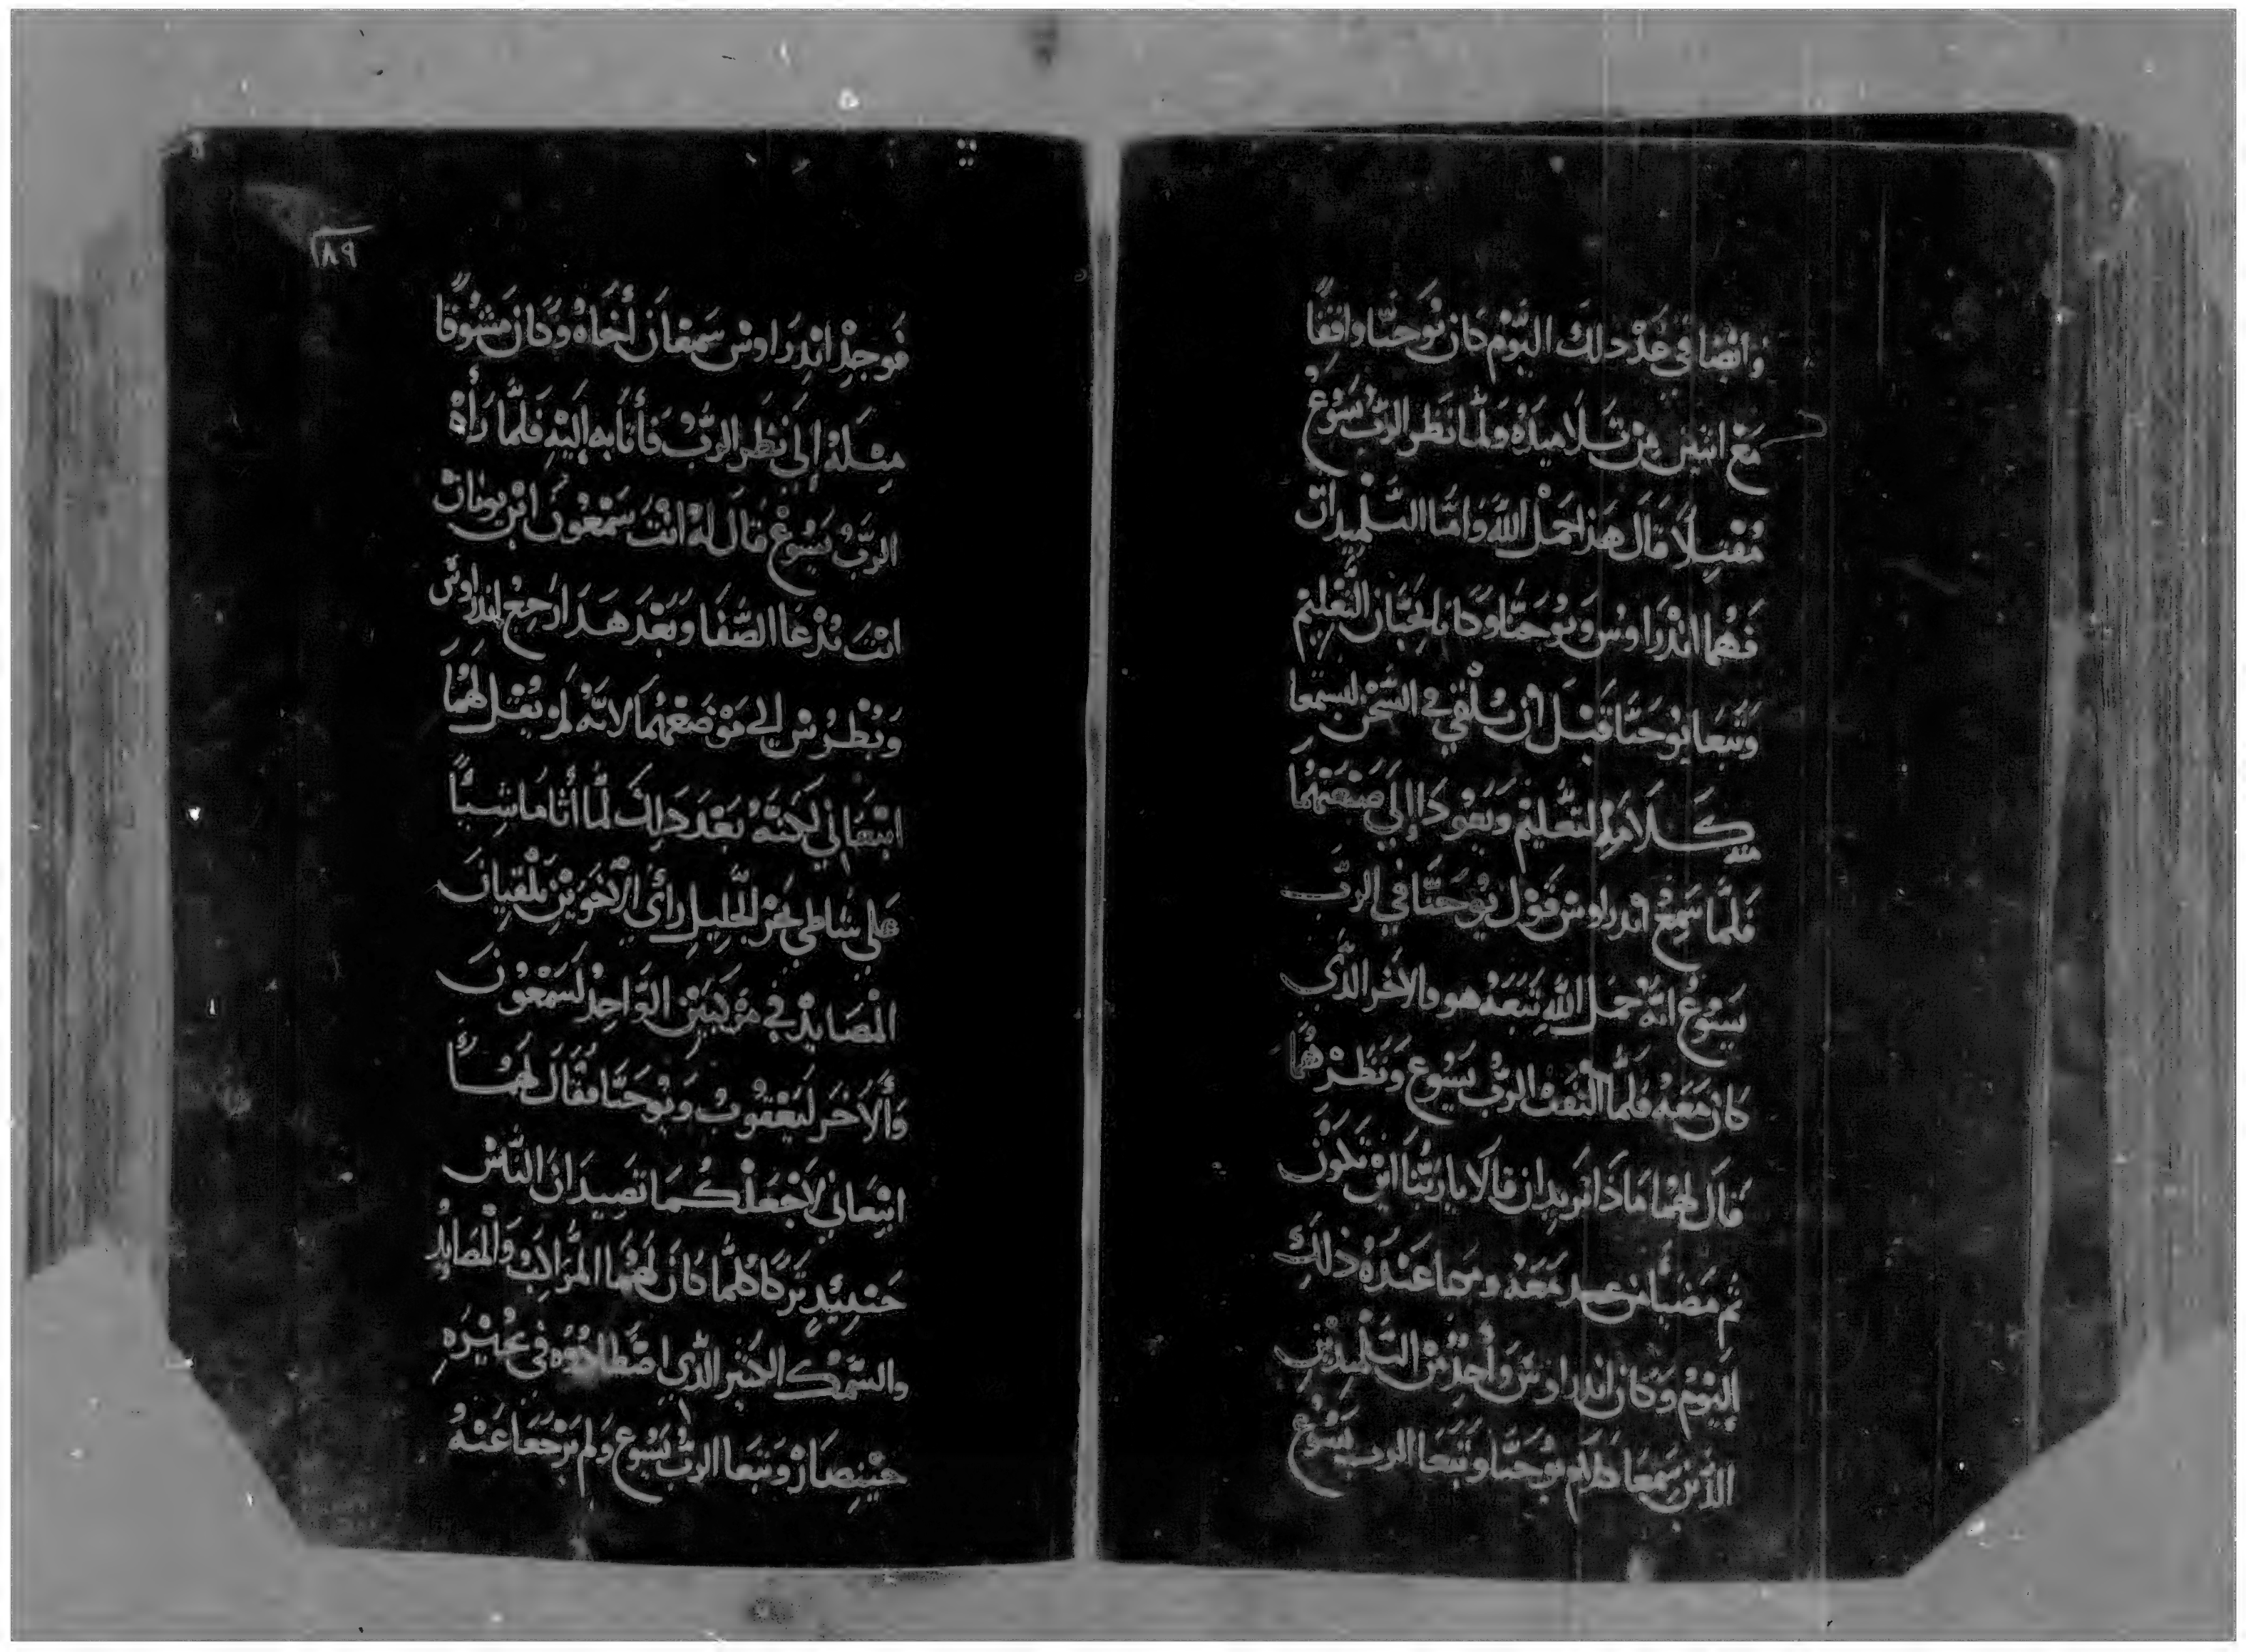 وايضا في غد ذلك اليوم كان يوحنا واقفًا
مع اثنين من تلاميذه ولما نظر الرب يسوع
مقبلًا قال هذا حمل الله واما التلميدان
فهما اندراوس ويوحنا وكانا يحبان التعليم
وتبعا يوحنا قبل ان يلقي في السجن ليسمعا
منه كلام التعليم ويعودا إلي صنعتهما
فلما سمع اندراوس قول يوحنا في الرب
يسوع انه حمل الله تبعه هو والاخر الذي
كان معه فلما التفت الرب يسوع ونظرهما
قال لهما ماذا تريدان قالا يا ربنا اين تكون
ثم مضيا معه عنده ذلك
اليوم وكان اندراوس وأحد من التلميدين
الذين سمعا كلام يوحنا وتبعا الرب يسوع
١٨٩
فوجد اندراوس سمعان أخاه وكان مشوقًا
مثله إلي نظر الرب فأتا به إليه فلما رأه
الرب يسوع قال له انت سمعون ابن يونان
انت تدعا الصفا وبعد هدا رجع اندراوس
وبطرس الي موضعهما لانه لم يقل لهما
اتبعاني لكنه بعد دلك لما أتا ماشيًا
علي شاطي بحر الجليل رأي الأخوين يلقيان
المصايد في مركبين الواحد لسمعون
وألاخر ليعقوب ويوحنا فقال لهما
اتبعاني لاجعلكما تصيدان الناس
حينئدٍ تركا كلما كان لهما المراكب والمصايد
والسمك الكثير الذي اصطادوه في بحيره
جينصار وتبعا الرب يسوع ولم يرجعا عنه